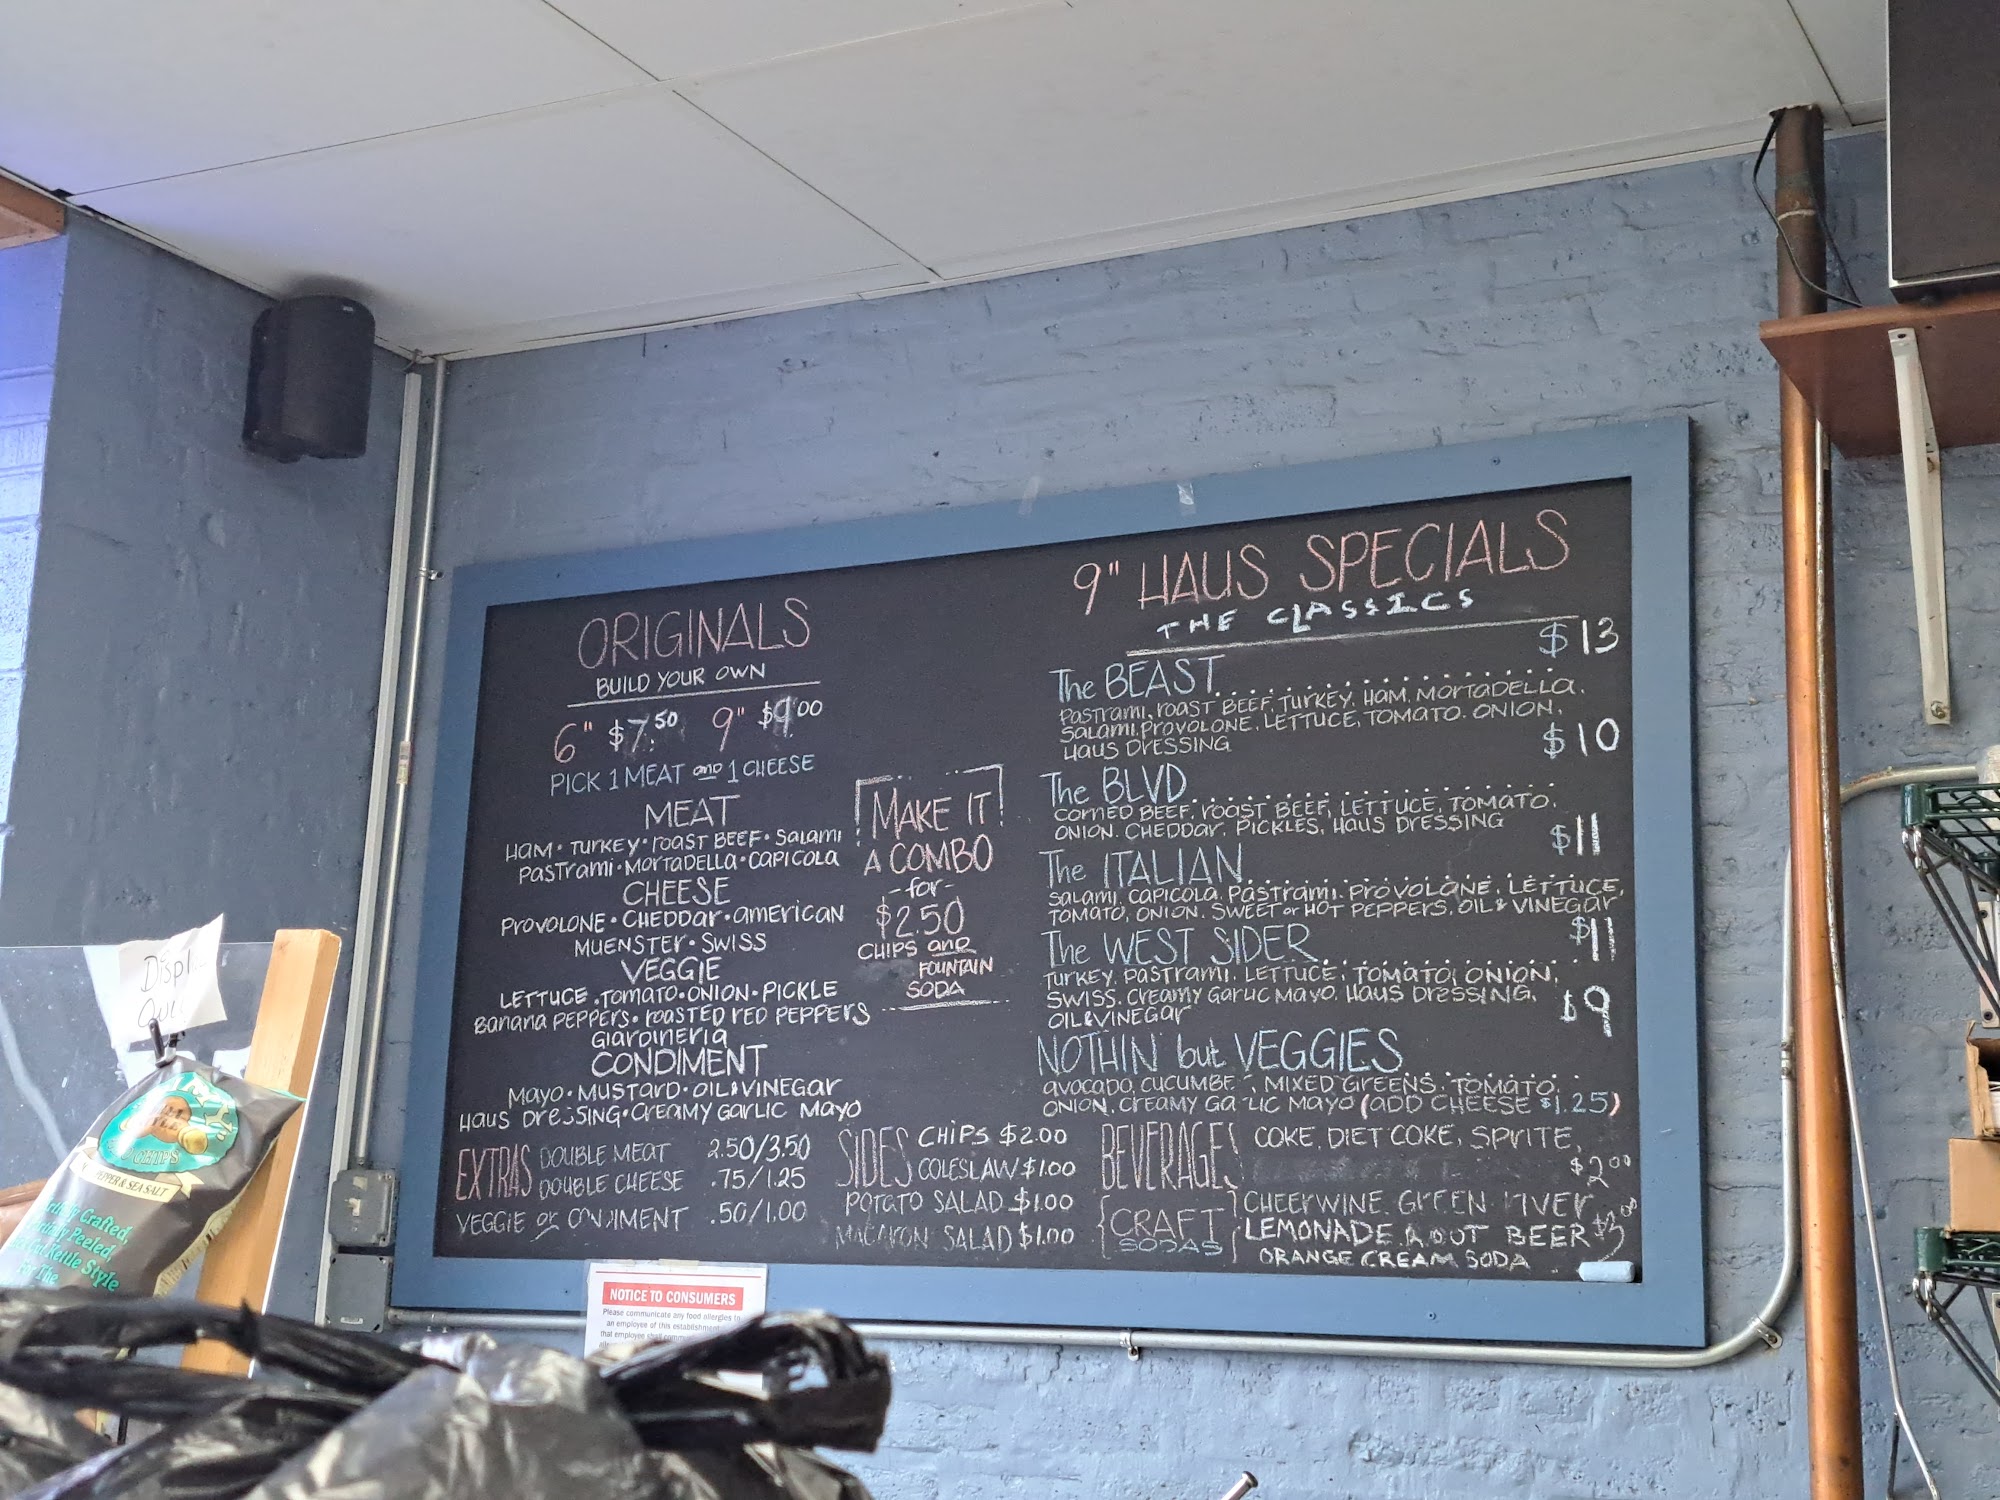 ORIGINALS
BUILD YOUR OWN
6" $7.50 9" $9.00
PICK 1 MEAT and 1 CHEESE
MEAT
HAM • TURKEY • ROAST BEEF • SALAMI
PASTRAMI • MORTADELLA • CAPICOLA
CHEESE
PROVOLONE • CHEDDAR • AMERICAN
MUENSTER • SWISS
VEGGIE
LETTUCE • TOMATO • ONION • PICKLE
BANANA PEPPERS • ROASTED RED PEPPERS
GIARDINERIA
CONDIMENT
MAYO • MUSTARD • OIL & VINEGAR
HAUS DRESSING • CREAMY GARLIC MAYO
MAKE IT
A COMBO
-for-
$2.50
CHIPS and
FOUNTAIN
SODA
9" HAUS SPECIALS
THE CLASSICS
The BEAST $13
PASTRAMI, ROAST BEEF, TURKEY, HAM, MORTADELLA,
SALAMI, PROVOLONE, LETTUCE, TOMATO, ONION,
HAUS DRESSING
The BLVD $10
CORNED BEEF, ROAST BEEF, LETTUCE, TOMATO,
ONION, CHEDDAR, PICKLES, HAUS DRESSING
The ITALIAN $11
SALAMI, CAPICOLA, PASTRAMI, PROVOLONE, LETTUCE,
TOMATO, ONION, SWEET or HOT PEPPERS, OIL & VINEGAR
The WEST SIDER $11
TURKEY, PASTRAMI, LETTUCE, TOMATO, ONION,
SWISS, CREAMY GARLIC MAYO, HAUS DRESSING,
OIL & VINEGAR
NOTHIN' but VEGGIES $9
AVOCADO, CUCUMBER, MIXED GREENS, TOMATO,
ONION, CREAMY GARLIC MAYO (ADD CHEESE $1.25)
EXTRAS
DOUBLE MEAT 2.50/3.50
DOUBLE CHEESE .75/1.25
VEGGIE or CONDIMENT .50/1.00
SIDES
CHIPS $2.00
COLESLAW $1.00
POTATO SALAD $1.00
MACARON SALAD $1.00
BEVERAGES
COKE, DIET COKE, SPRITE,
$2.00
CRAFT
SODAS
CHEERWINE, GREEN RIVER
LEMONADE, ROOT BEER $3.00
ORANGE CREAM SODA
NOTICE TO CONSUMERS
Please communicate any food allergies to
an employee of this establishment
that employee shall
CHIPS
PEPPER & SEA SALT
Crafted,
Peeled,
Kettle Style
For The